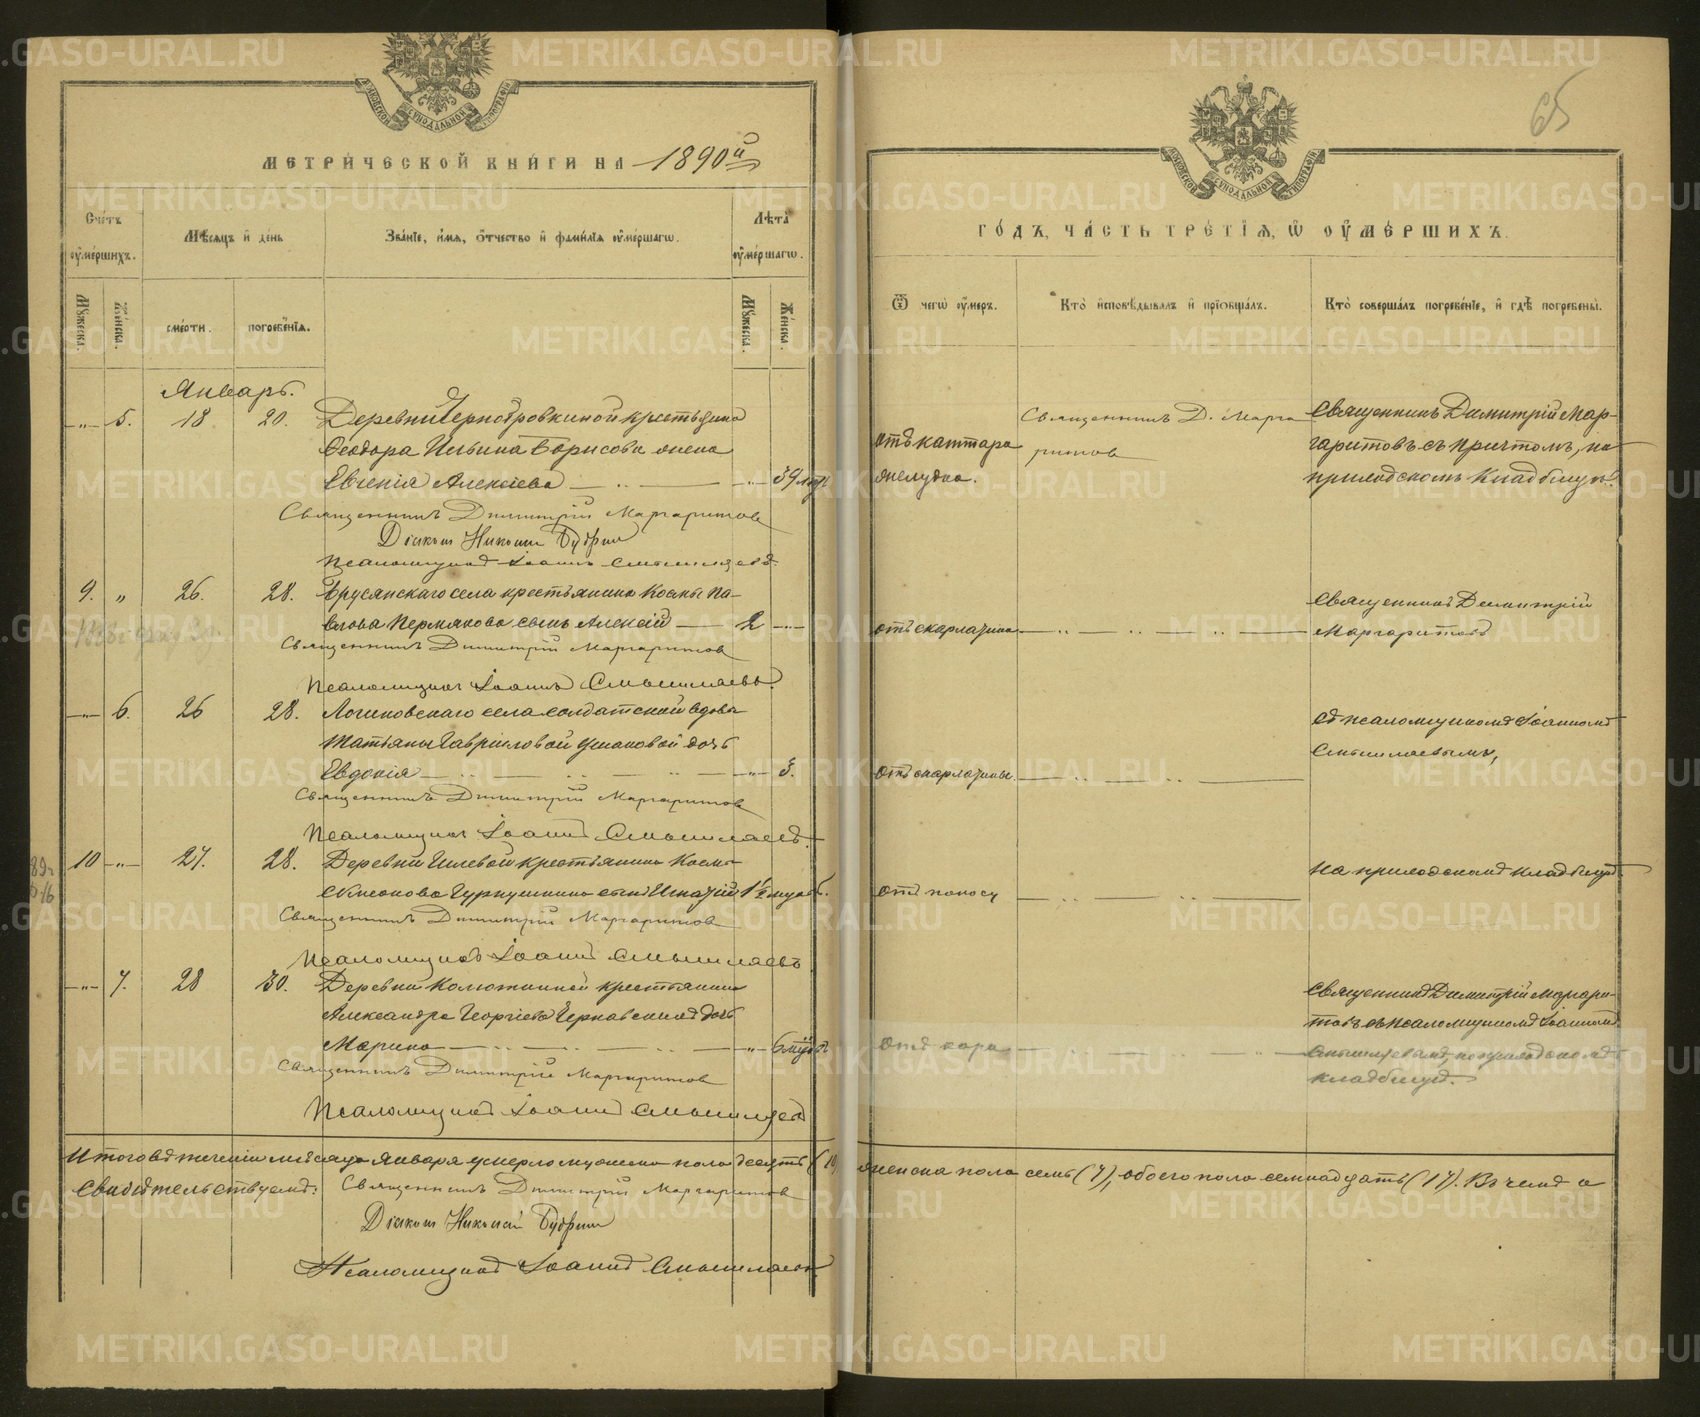 МЕТРИЧЕСКОЙ КНИГИ НА 1890й
Счетъ оумершихъ.
Мѣсяцъ и день
Званіе, имя, отчество и фамилія оумершаго.
Лѣта оумершаго.
Мужеска.
Женска.
смерти.
погребенія.
Мужеска.
Женска.
Январь.
-"- 5. 18 20. Деревни крестьянина
Ѳеодора Ильина Борисова жена
Евгенія Алексіева -"- 39
Священникъ Димитрій Маргаритовъ
Діаконъ Николай
Псаломщикъ Іоаннъ Смышляевъ
9. " 26. 28. Брусянскаго села крестьянина Космы Па-
влова Пермякова сынъ Алексій 2 -"-
Священникъ Димитрій Маргаритовъ
Псаломщикъ Іоаннъ Смышляевъ.
-"- 6. 26 28. Логиновскаго села солдатской вдовы
Татьяны Гавріиловой Ушаковой дочь
Евдокія -"- 3.
Священникъ Димитрій Маргаритовъ
Псаломщикъ Іоаннъ Смышляевъ.
10 -"- 27. 28. Деревни крестьянина Космы
сынъ Игнатій 1½
Священникъ Димитрій Маргаритовъ
Псаломщикъ Іоаннъ Смышляевъ
-"- 7. 28 30. Деревни Колюткиной крестьянина
Александра Георгіева Чернавскихъ дочь
Марина -"- 6
Священникъ Димитрій Маргаритовъ
Псаломщикъ Іоаннъ Смышляевъ
Итого въ теченіи мѣсяца Января умерло мужеска пола десять (10),
Свидѣтельствуемъ: Священникъ Димитрій Маргаритовъ
Діаконъ Николай
Псаломщикъ Іоаннъ Смышляевъ.
65
ГОДЪ, ЧАСТЬ ТРЕТІЯ, Ѿ ОУМЕРШИХЪ.
Ѿ чего оумеръ.
Кто исповѣдывалъ и пріобщалъ.
Кто совершалъ погребеніе, и гдѣ погребены.
Отъ каттара
желудка.
Священникъ Д. Марга
ритов
Священникъ Димитрій Мар-
гаритовъ съ причтомъ, на
приходскомъ кладбищѣ.
отъ скарлатины
Священникъ Димитрій
Маргаритовъ
отъ скарлатины.
съ псаломщикомъ Іоанномъ
Смышляевымъ,
отъ поносу
на приходскомъ кладбищѣ
отъ кори
Священникъ Димитрій Маргари-
товъ съ псаломщикомъ Іоанномъ
Смышляевымъ, на приходскомъ
кладбищѣ.
женска пола семь (7), обоего пола семнадцать (17). Въ чемъ и
METRIKI.GASO-URAL.RU